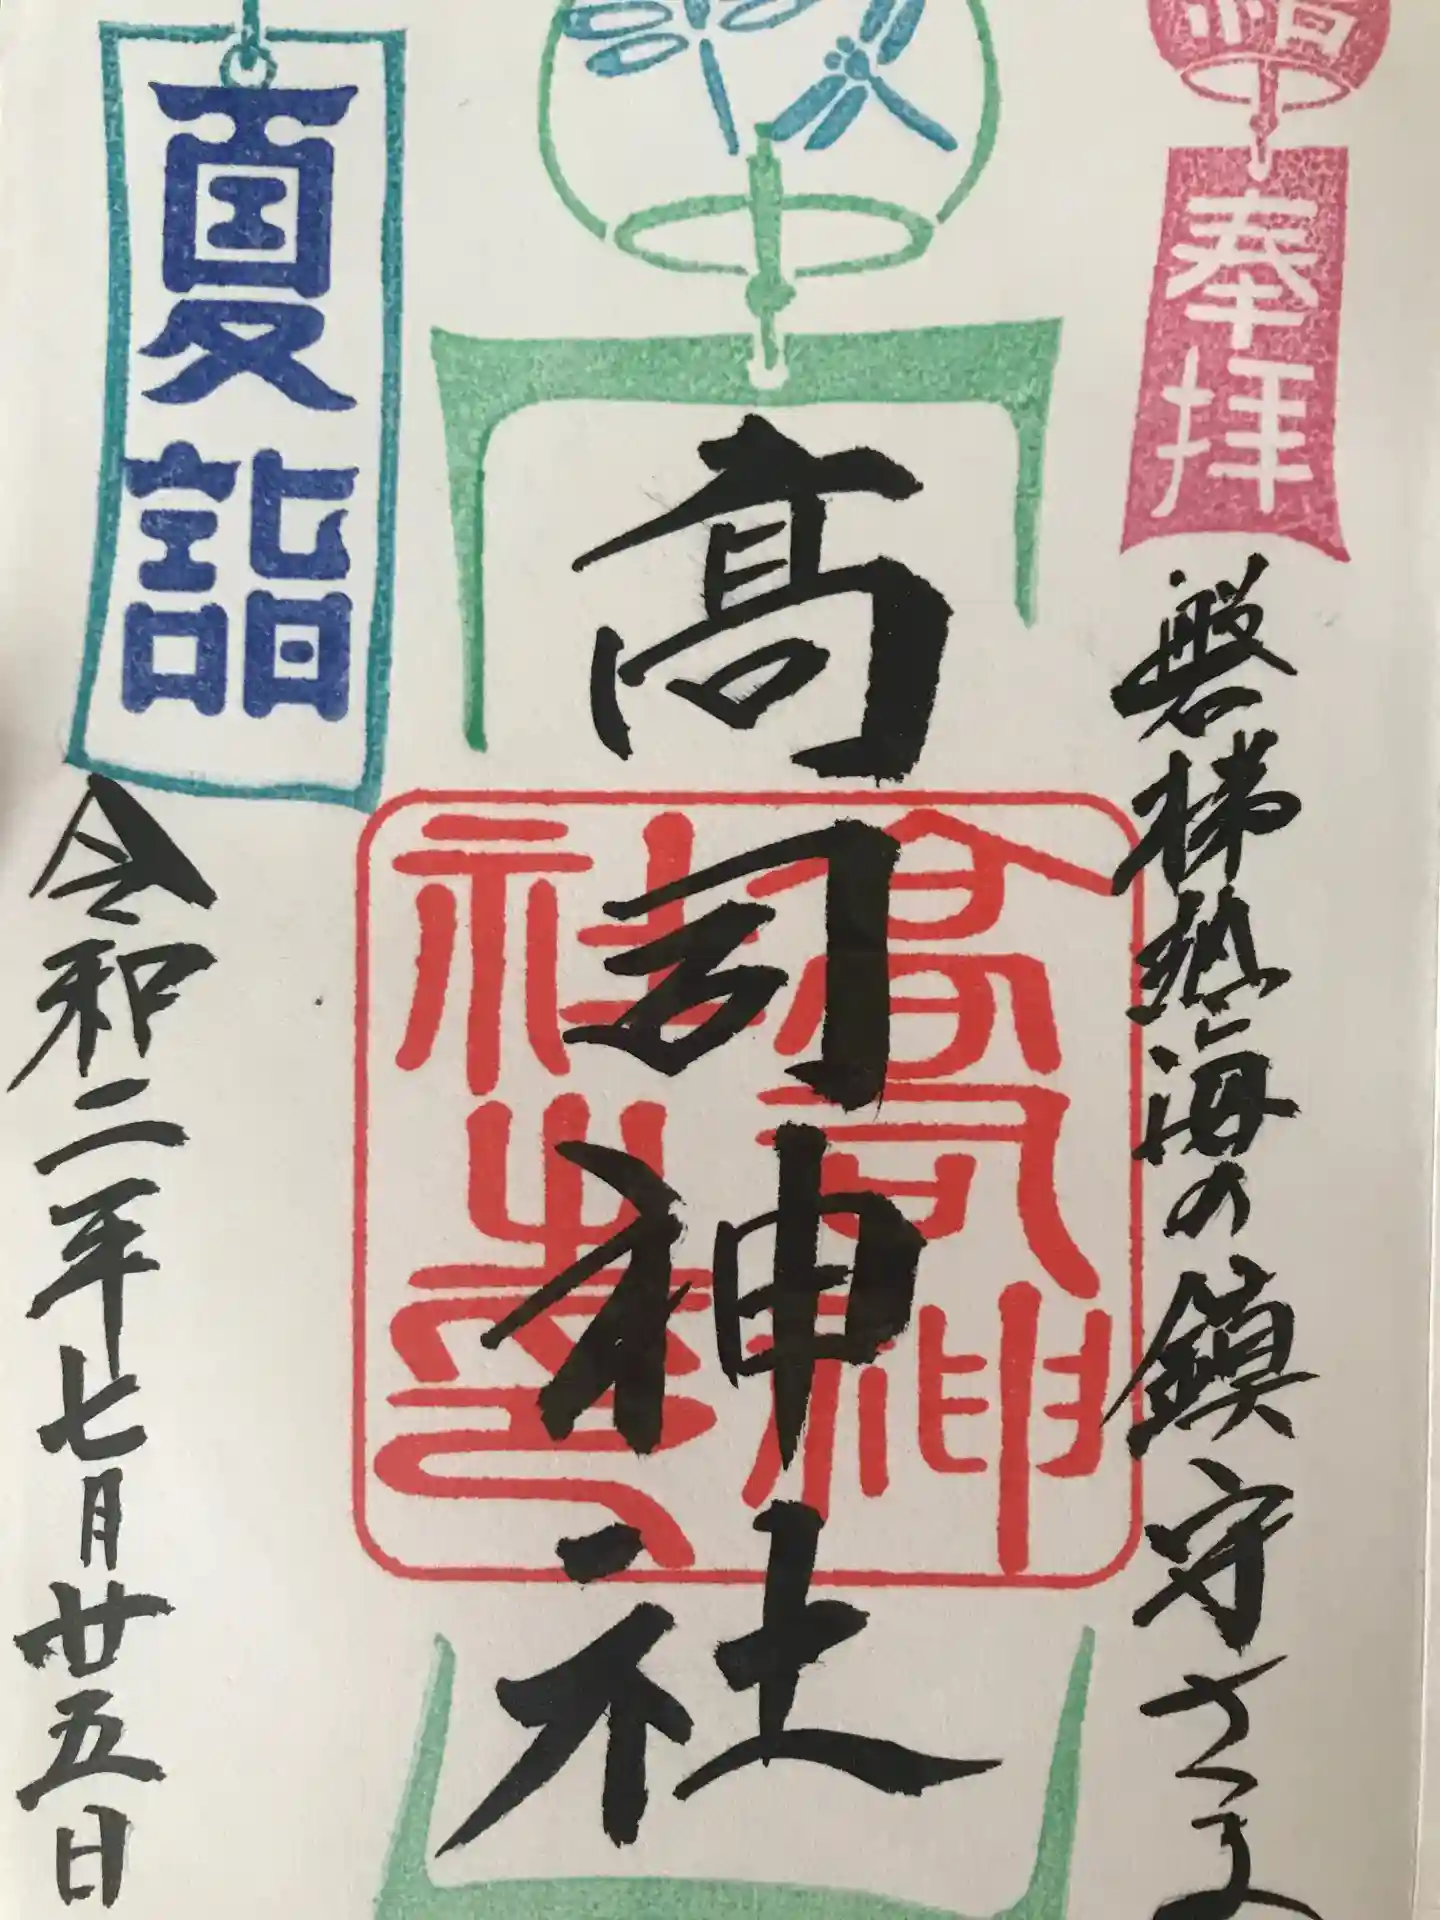 奉拝
磐梯熱海の鎮守さま
髙司神社
高司神
社之印
夏詣
令和二年七月廿五日